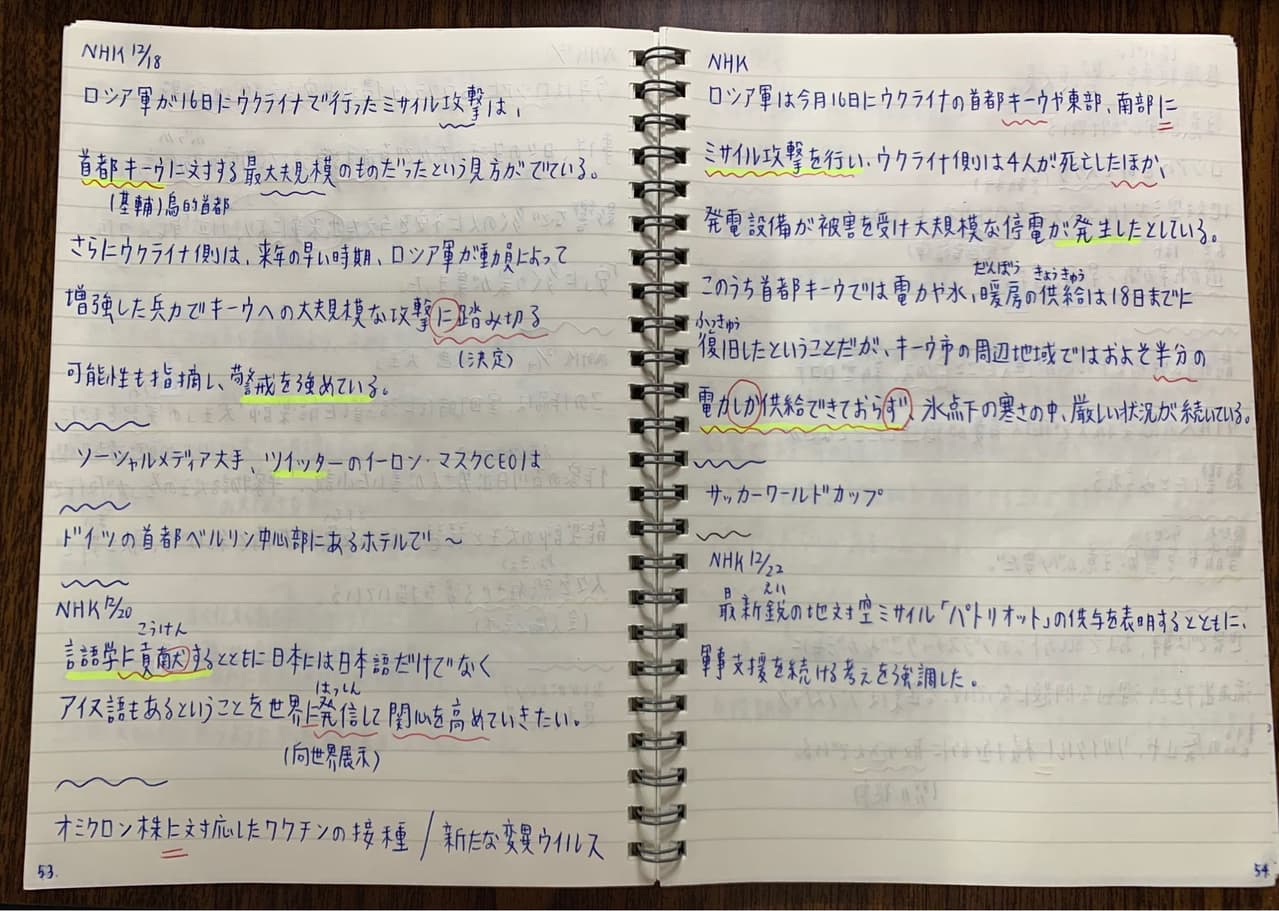 NHK 12/18
ロシア軍が16日にウクライナで行ったミサイル攻撃は、
首都キーウに対する最大規模のものだったという見方がでている。
(基輔)烏的首都
さらにウクライナ側は、来年の早い時期、ロシア軍が動員によって
増強した兵力でキーウへの大規模な攻撃に踏み切る
(決定)
可能性も指摘し、警戒を強めている。
ソーシャルメディア大手、ツイッターのイーロン・マスクCEOは
ドイツの首都ベルリン中心部にあるホテルで〜
NHK 12/20
こうけん
言語学に貢献するとともに日本には日本語だけでなく
はっしん
アイヌ語もあるということを世界に発信して関心を高めていきたい。
(向世界展示)
オミクロン株に対応したワクチンの接種 / 新たな変異ウイルス
53.
NHK
ロシア軍は今月16日にウクライナの首都キーウや東部、南部に
ミサイル攻撃を行い、ウクライナ側は4人が死亡したほか、
発電設備が被害を受け大規模な停電が発生したとしている。
だんぼう きょうきゅう
このうち首都キーウでは電力や水、暖房の供給は18日までに
ふっきゅう
復旧したということだが、キーウ市の周辺地域ではおよそ半分の
電力しか供給できておらず、氷点下の寒さの中、厳しい状況が続いている。
サッカーワールドカップ
NHK 12/22
えい
最新鋭の地対空ミサイル「パトリオット」の供与を表明するとともに、
軍事支援を続ける考えを強調した。
54.